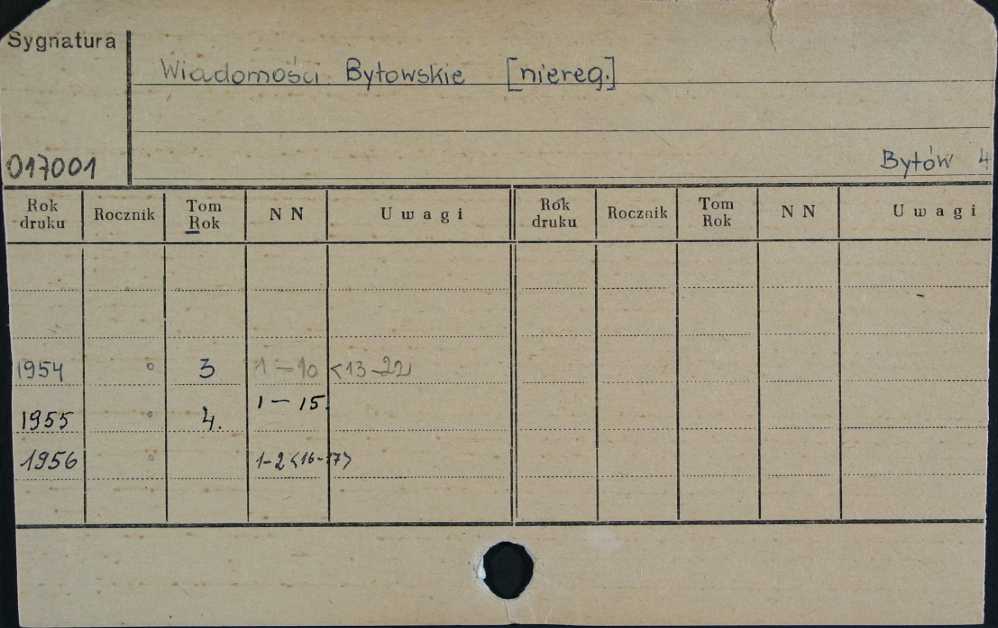 Sygnatura
Wiadomości Bytowskie [niereg.]
017001
Bytów 4
Rok druku Rocznik Tom Rok NN Uwagi Rok druku Rocznik Tom Rok NN Uwagi
1954 ° 3 1-10 <13-22>
1955 ° 4. 1-15.
1956 ° 1-2 <16-17>